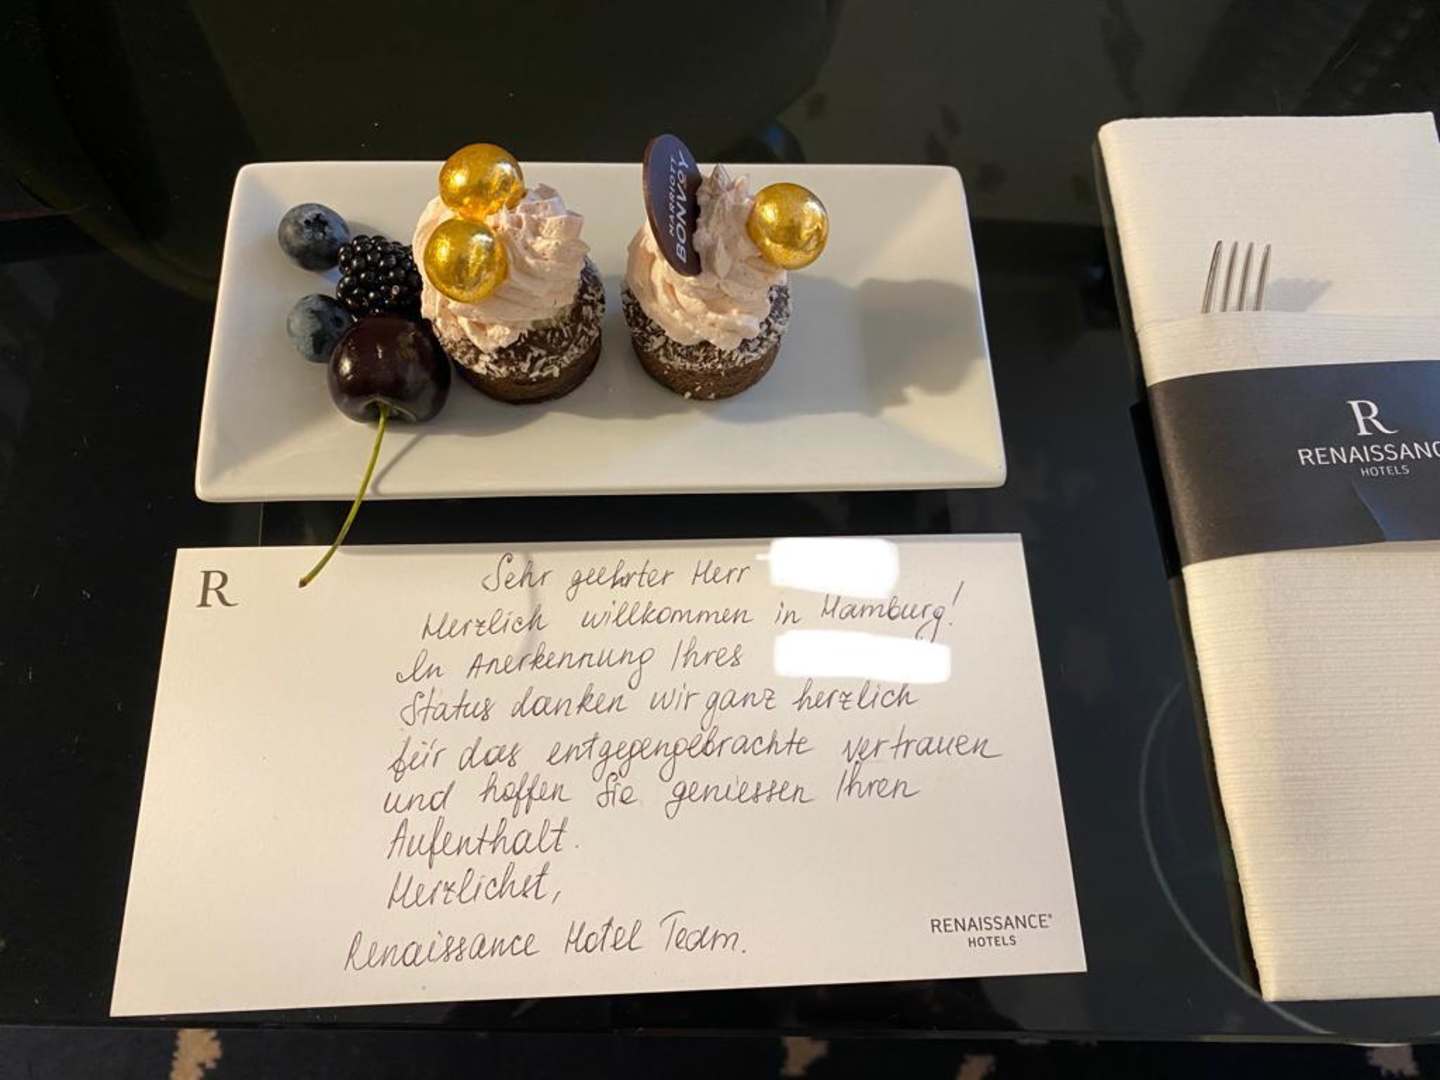 MARRIOTT
BONVOY
R
RENAISSANC
HOTELS
R
Sehr geehrter Herr
Herzlich willkommen in Hamburg!
In Anerkennung Ihres
Status danken wir ganz herzlich
für das entgegengebrachte vertrauen
und hoffen Sie geniessen Ihren
Aufenthalt.
Herzlichst,
Renaissance Hotel Team.
RENAISSANCE®
HOTELS